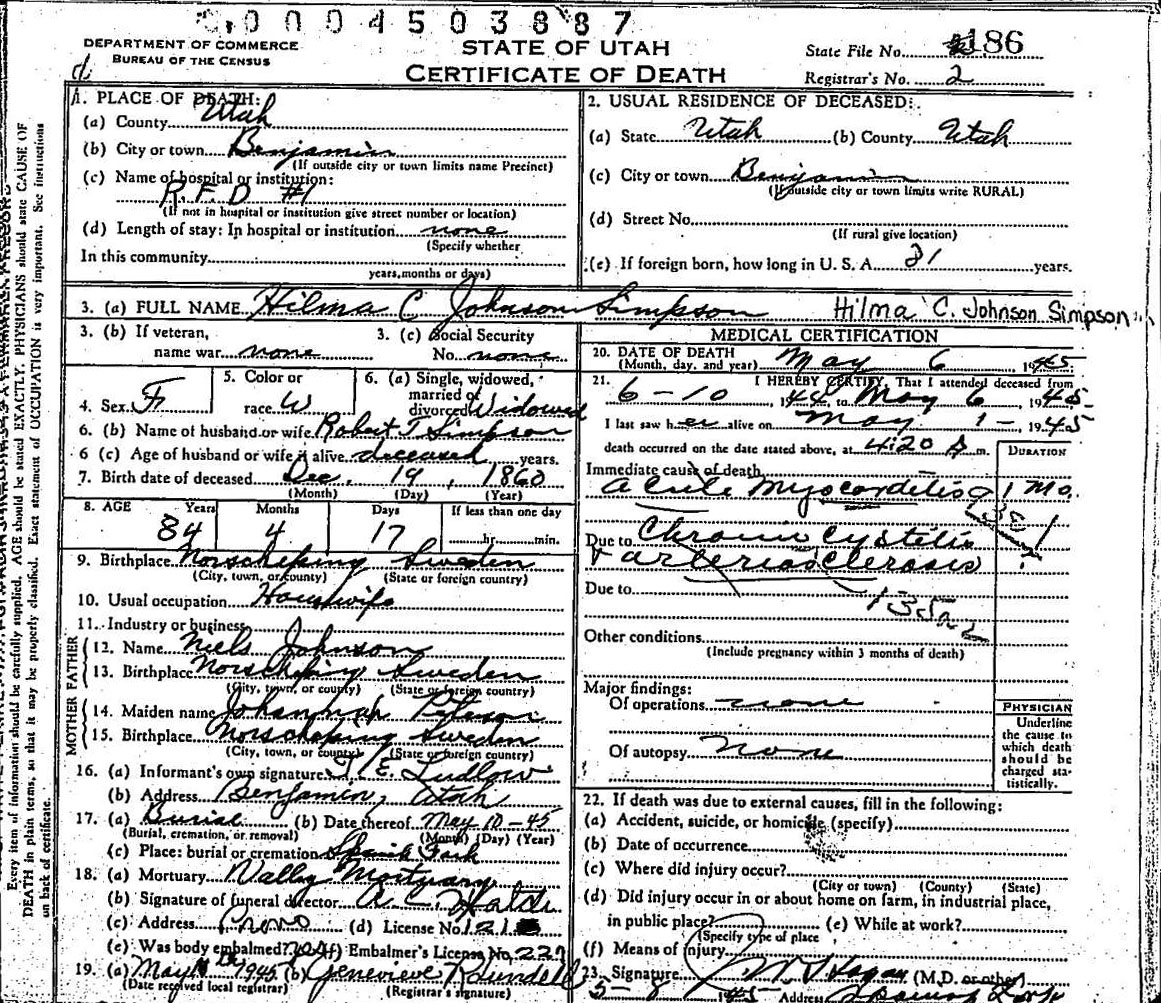 0004503887
DEPARTMENT OF COMMERCE
BUREAU OF THE CENSUS
STATE OF UTAH
CERTIFICATE OF DEATH
State File No. 186
Registrar's No. 2
1. PLACE OF DEATH:
(a) County Utah
(b) City or town Benjamin
(If outside city or town limits name Precinct)
(c) Name of hospital or institution:
R.F.D #1
(If not in hospital or institution give street number or location)
(d) Length of stay: In hospital or institution none
(Specify whether
In this community
years, months or days)
2. USUAL RESIDENCE OF DECEASED:
(a) State Utah (b) County Utah
(c) City or town Benjamin
(If outside city or town limits write RURAL)
(d) Street No.
(If rural give location)
(e) If foreign born, how long in U. S. A. 81 years.
3. (a) FULL NAME Hilma C Johnson Simpson Hilma C. Johnson Simpson
3. (b) If veteran,
name war none
3. (c) Social Security
No. none
4. Sex F
5. Color or
race W
6. (a) Single, widowed,
married or
divorced Widowed
6. (b) Name of husband or wife Robert T Simpson
6 (c) Age of husband or wife if alive deceased years.
7. Birth date of deceased Dec. 19, 1860
(Month) (Day) (Year)
8. AGE Years Months Days If less than one day
84 4 17 hr. min.
9. Birthplace Norscheping Sweden
(City, town, or county) (State or foreign country)
10. Usual occupation Housewife
11. Industry or business
FATHER
12. Name Niels Johnson
13. Birthplace Norscheping Sweden
(City, town, or county) (State or foreign country)
MOTHER
14. Maiden name Johannah Peterson
15. Birthplace Norscheping Sweden
(City, town, or county) (State or foreign country)
16. (a) Informant's own signature E. Ludlow
(b) Address Benjamin, Utah
17. (a) Burial (b) Date thereof May 10-45
(Burial, cremation, or removal) (Month) (Day) (Year)
(c) Place: burial or cremation Spanish Fork
18. (a) Mortuary Valley Mortuary
(b) Signature of funeral director A. C.
(c) Address Provo (d) License No. 121
(e) Was body embalmed? yes (f) Embalmer's License No. 227
19. (a) May 1945 (b) Genevieve
(Date received local registrar) (Registrar's signature)
MEDICAL CERTIFICATION
20. DATE OF DEATH May 6 1945
(Month, day, and year)
21. I HEREBY CERTIFY, That I attended deceased from
6-10, 1944 to May 6, 1945
I last saw her alive on May 1-, 1945
death occurred on the date stated above, at 4:20 m.
DURATION
Immediate cause of death
acute Myocardetis 1 Mo.
Due to Chronic Cystitis
& arteriosclerosis ?
Due to
Other conditions
(Include pregnancy within 3 months of death)
Major findings:
Of operations none
Of autopsy none
PHYSICIAN
Underline
the cause to
which death
should be
charged sta-
tistically.
22. If death was due to external causes, fill in the following:
(a) Accident, suicide, or homicide (specify)
(b) Date of occurrence
(c) Where did injury occur?
(City or town) (County) (State)
(d) Did injury occur in or about home on farm, in industrial place,
in public place? (e) While at work?
(Specify type of place
(f) Means of injury
23. Signature Hagan (M.D. or other)
5-8 1945 Address Spanish Fork
Every item of information should be carefully supplied. AGE should be stated EXACTLY. PHYSICIANS should state CAUSE OF
DEATH in plain terms, so that it may be properly classified. Exact statement of OCCUPATION is very important. See instructions
on back of certificate.